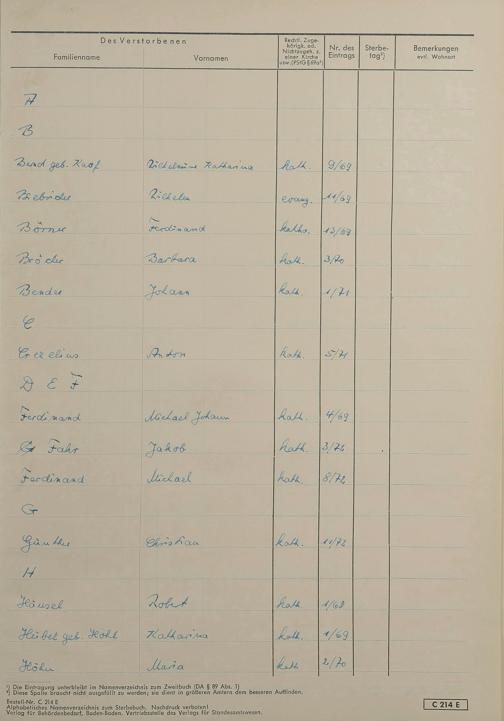 Des Verstorbenen
Familienname Vornamen Rechtl. Zuge- hörigk. od. Nichtzugeh. z. einer Kirche usw. (PStG § 69a¹) Nr. des Eintrags Sterbe- tag²) Bemerkungen evtl. Wohnort
A
B
Bend geb. Katharina kath. 9/69
Biebricher Wilhelm evang. 11/69
Börner Ferdinand kath. 13/69
Bröder Barbara kath. 3/70
Bender Johann kath. 1/71
C
Crecelius Anton kath. 5/71
D E F
Ferdinand Michael Johann kath. 4/69
G Fahr Jakob kath. 3/72
Ferdinand Michael kath. 8/72
G
Günther Christian kath. 11/72
H
Häusel Robert kath 1/68
Hübel geb. Höhl Katharina kath. 1/69
Höhn Maria kath 2/70
¹) Die Eintragung unterbleibt im Namenverzeichnis zum Zweitbuch (DA § 89 Abs. 1)
²) Diese Spalte braucht nicht ausgefüllt zu werden; sie dient in größeren Ämtern dem besseren Auffinden.
Bestell-Nr. C 214 E
Alphabetisches Namenverzeichnis zum Sterbebuch. Nachdruck verboten!
Verlag für Behördenbedarf, Baden-Baden. Vertriebsstelle des Verlags für Standesamtswesen.
C 214 E